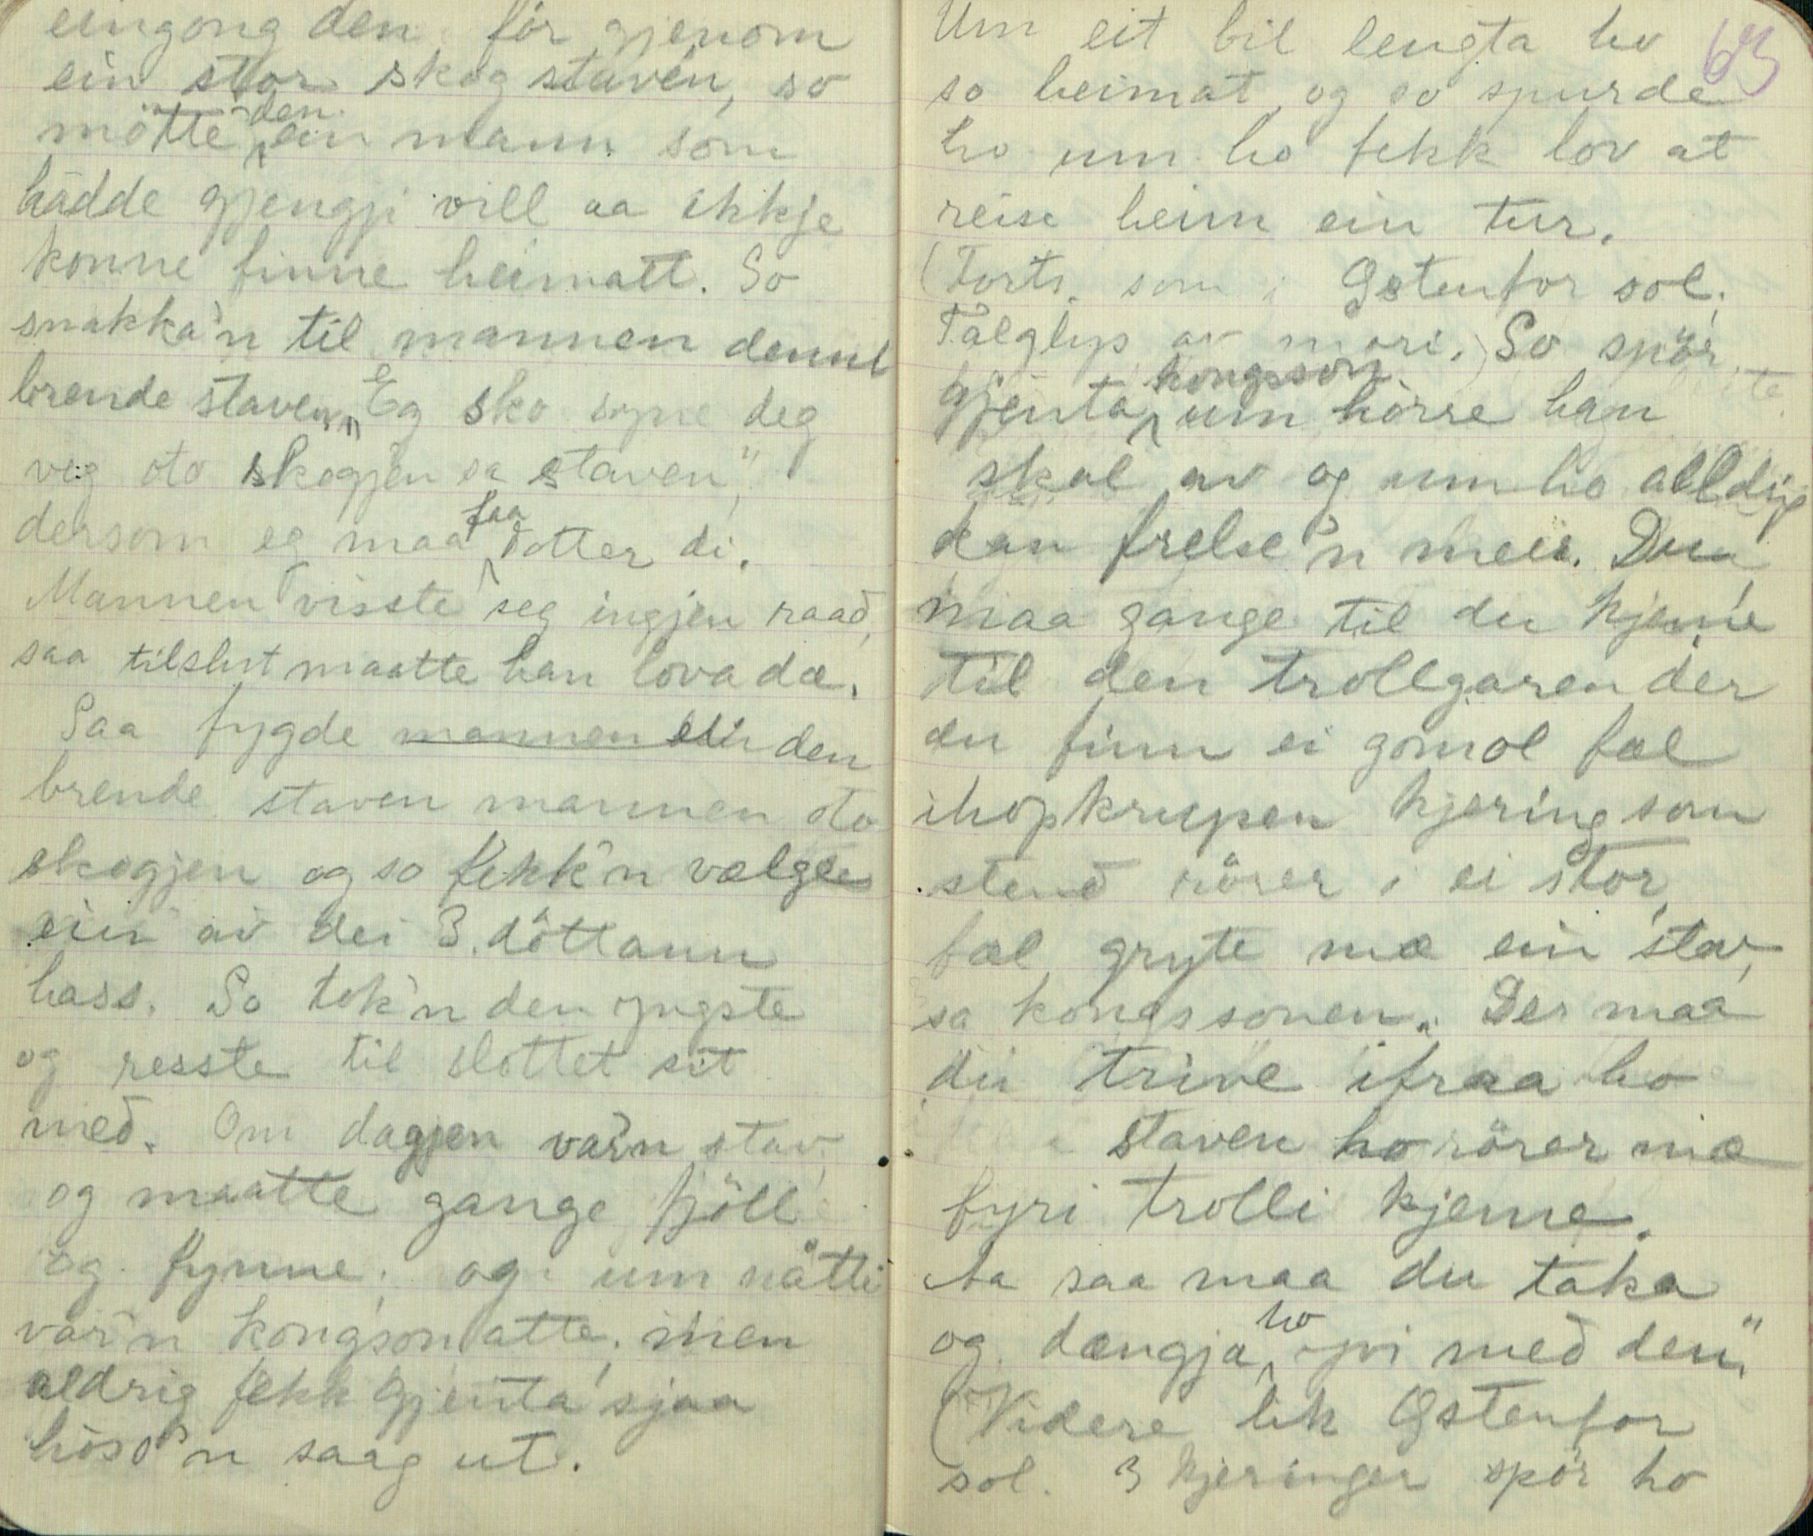 eingong den fór gjenom
ein stor skog staven, so
møtte den ein mann som
hadde gjengji vill aa ikkje
konne finne heimatt. So
snakka'n til mannen denne
brende staven, "Eg sko syne deg
veg oto skogjen sa staven",
dersom eg maa faa dotter di.
Mannen visste seg ingjen raad,
saa tilslut maatte han lova dæ.
Saa fygde mannen den
brende staven mannen oto
skogjen og so fekk'n vælge
ein av dei 3 döttann
hass. So tok'n den yngste
og resste til slottet sit
med. Om dagjen var'n stav
og maatte gange fjöll
og fynne, og um nåtti
var'n kongson atte, men
aldrig fekk gjenta sjaa
hoss'n saag ut.
63
Um eit bil lengta ho
so heimat, og so spurde
ho um ho fekk lov at
reise heim ein tur.
(Forts. som i Østenfor sol,
Talglys av mori.) So spör
gjenta kongsson um hörre han
skal av og um ho alldrig
kan frelse'n meir. Du
maa gange til du kjeme
til den trollgaren der
du finn ei gomol fæl
ihopkrupen kjering som
stend rörer i ei stor,
fæl gryte mæ ein stav,
sa kongssonen. Der maa
du trive ifraa ho
staven ho rörer mæ
fyri trolli kjeme.
Aa saa maa du taka
og dængja ho med den"
(Videre lik Østenfor
sol. 3 kjeringer spör ho